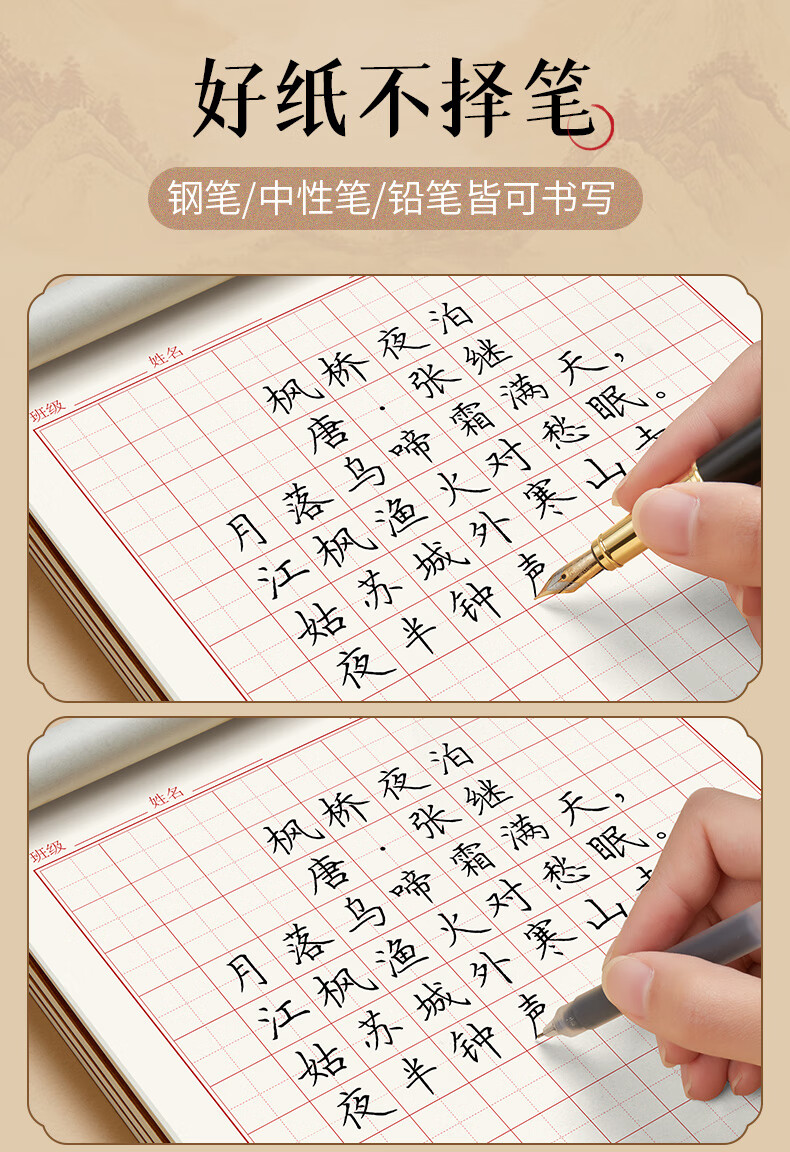 好纸不择笔
钢笔/中性笔/铅笔皆可书写
班级 姓名
枫桥夜泊
唐·张继
月落乌啼霜满天，
江枫渔火对愁眠。
姑苏城外寒山
夜半钟声
班级 姓名
枫桥夜泊
唐·张继
月落乌啼霜满天，
江枫渔火对愁眠。
姑苏城外寒山
夜半钟声